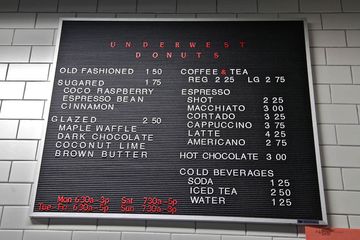 UNDERWEST
DONUTS
OLD FASHIONED 1 50
SUGARED 1 75
COCO RASPBERRY
ESPRESSO BEAN
CINNAMON
GLAZED 2 50
MAPLE WAFFLE
DARK CHOCOLATE
COCONUT LIME
BROWN BUTTER
Mon 630a-3p Sat 730a-5p
Tue-Fri 630a-5p Sun 730a-5p
COFFEE & TEA
REG 2 25 LG 2 75
ESPRESSO
SHOT 2 25
MACCHIATO 3 00
CORTADO 3 25
CAPPUCCINO 3 75
LATTE 4 25
AMERICANO 2 75
HOT CHOCOLATE 3 00
COLD BEVERAGES
SODA 1 25
ICED TEA 2 50
WATER 1 25